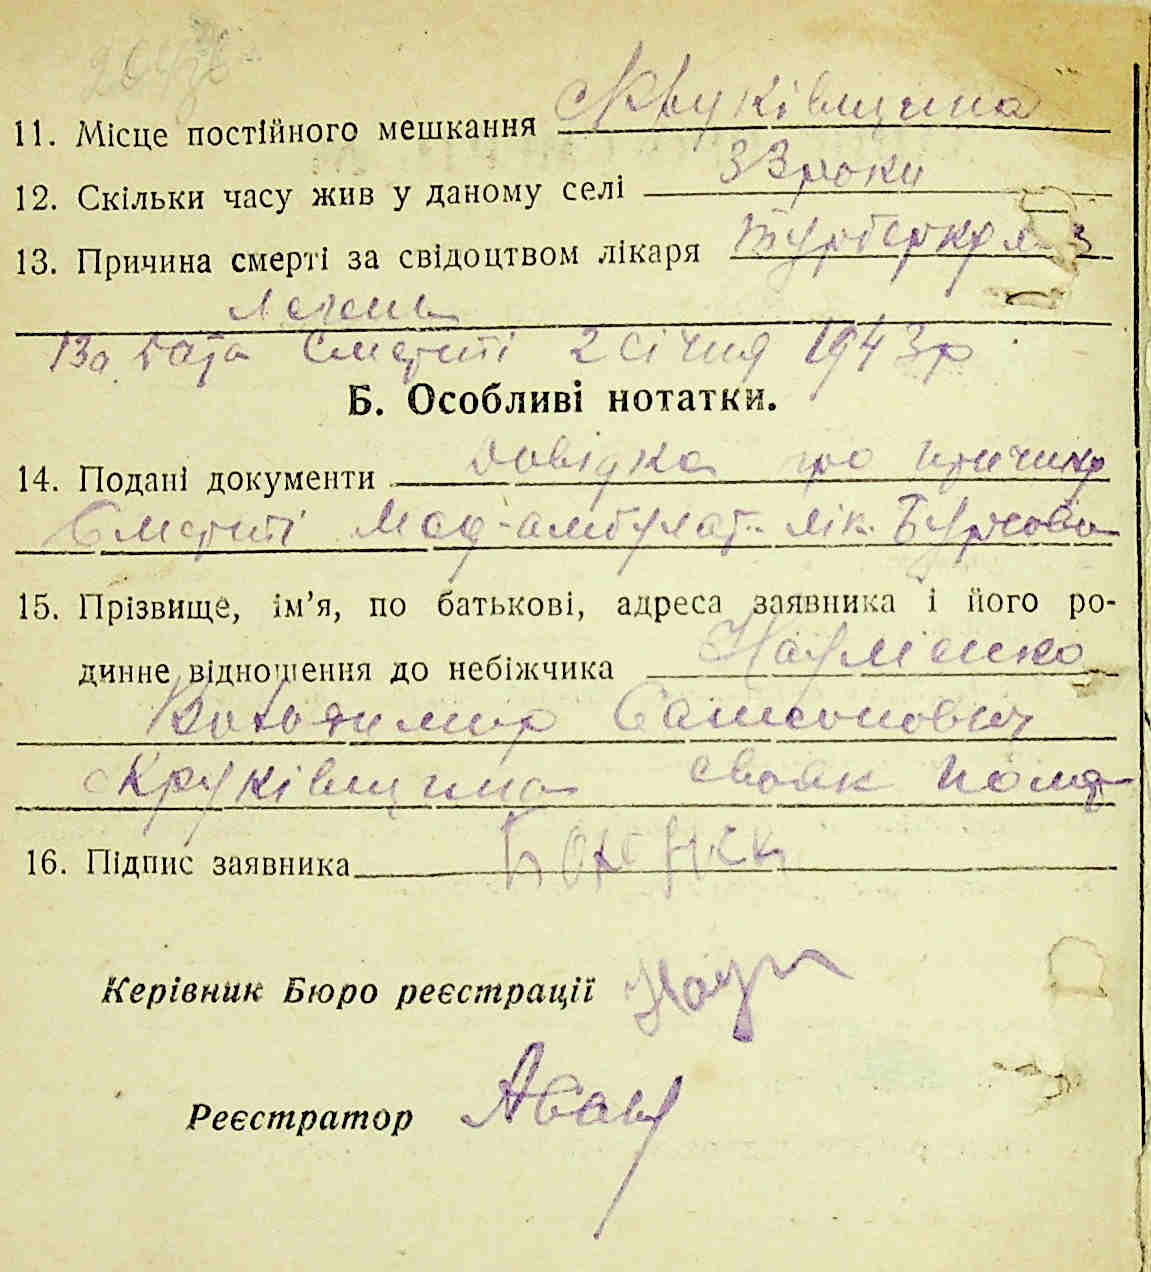 11. Місце постійного мешкання Круківщина
12. Скільки часу жив у даному селі 33 роки
13. Причина смерті за свідоцтвом лікаря туберкульоз
легень
13а. Дата смерті 2 січня 1943 р
Б. Особливі нотатки.
14. Подані документи довідка про причину
смерті лік.
15. Прізвище, ім’я, по батькові, адреса заявника і його ро-
динне відношення до небіжчика Науменко
Володимир Самсонович
Круківщина свояк
16. Підпис заявника
Керівник Бюро реєстрації
Реєстратор